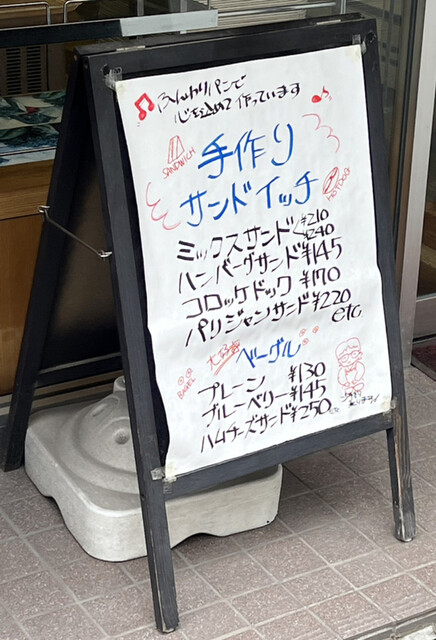 ふんわりパンで
心を込めて作っています
SANDWICH
手作り
サンドイッチ
HOTDOG
ミックスサンド ¥210
¥240
ハンバーグサンド ¥145
コロッケドック ¥170
パリジャンサンド ¥220
etc
大好評
ベーグル
BAGEL
プレーン ¥130
ブルーベリー ¥145
ハムチーズサンド ¥250